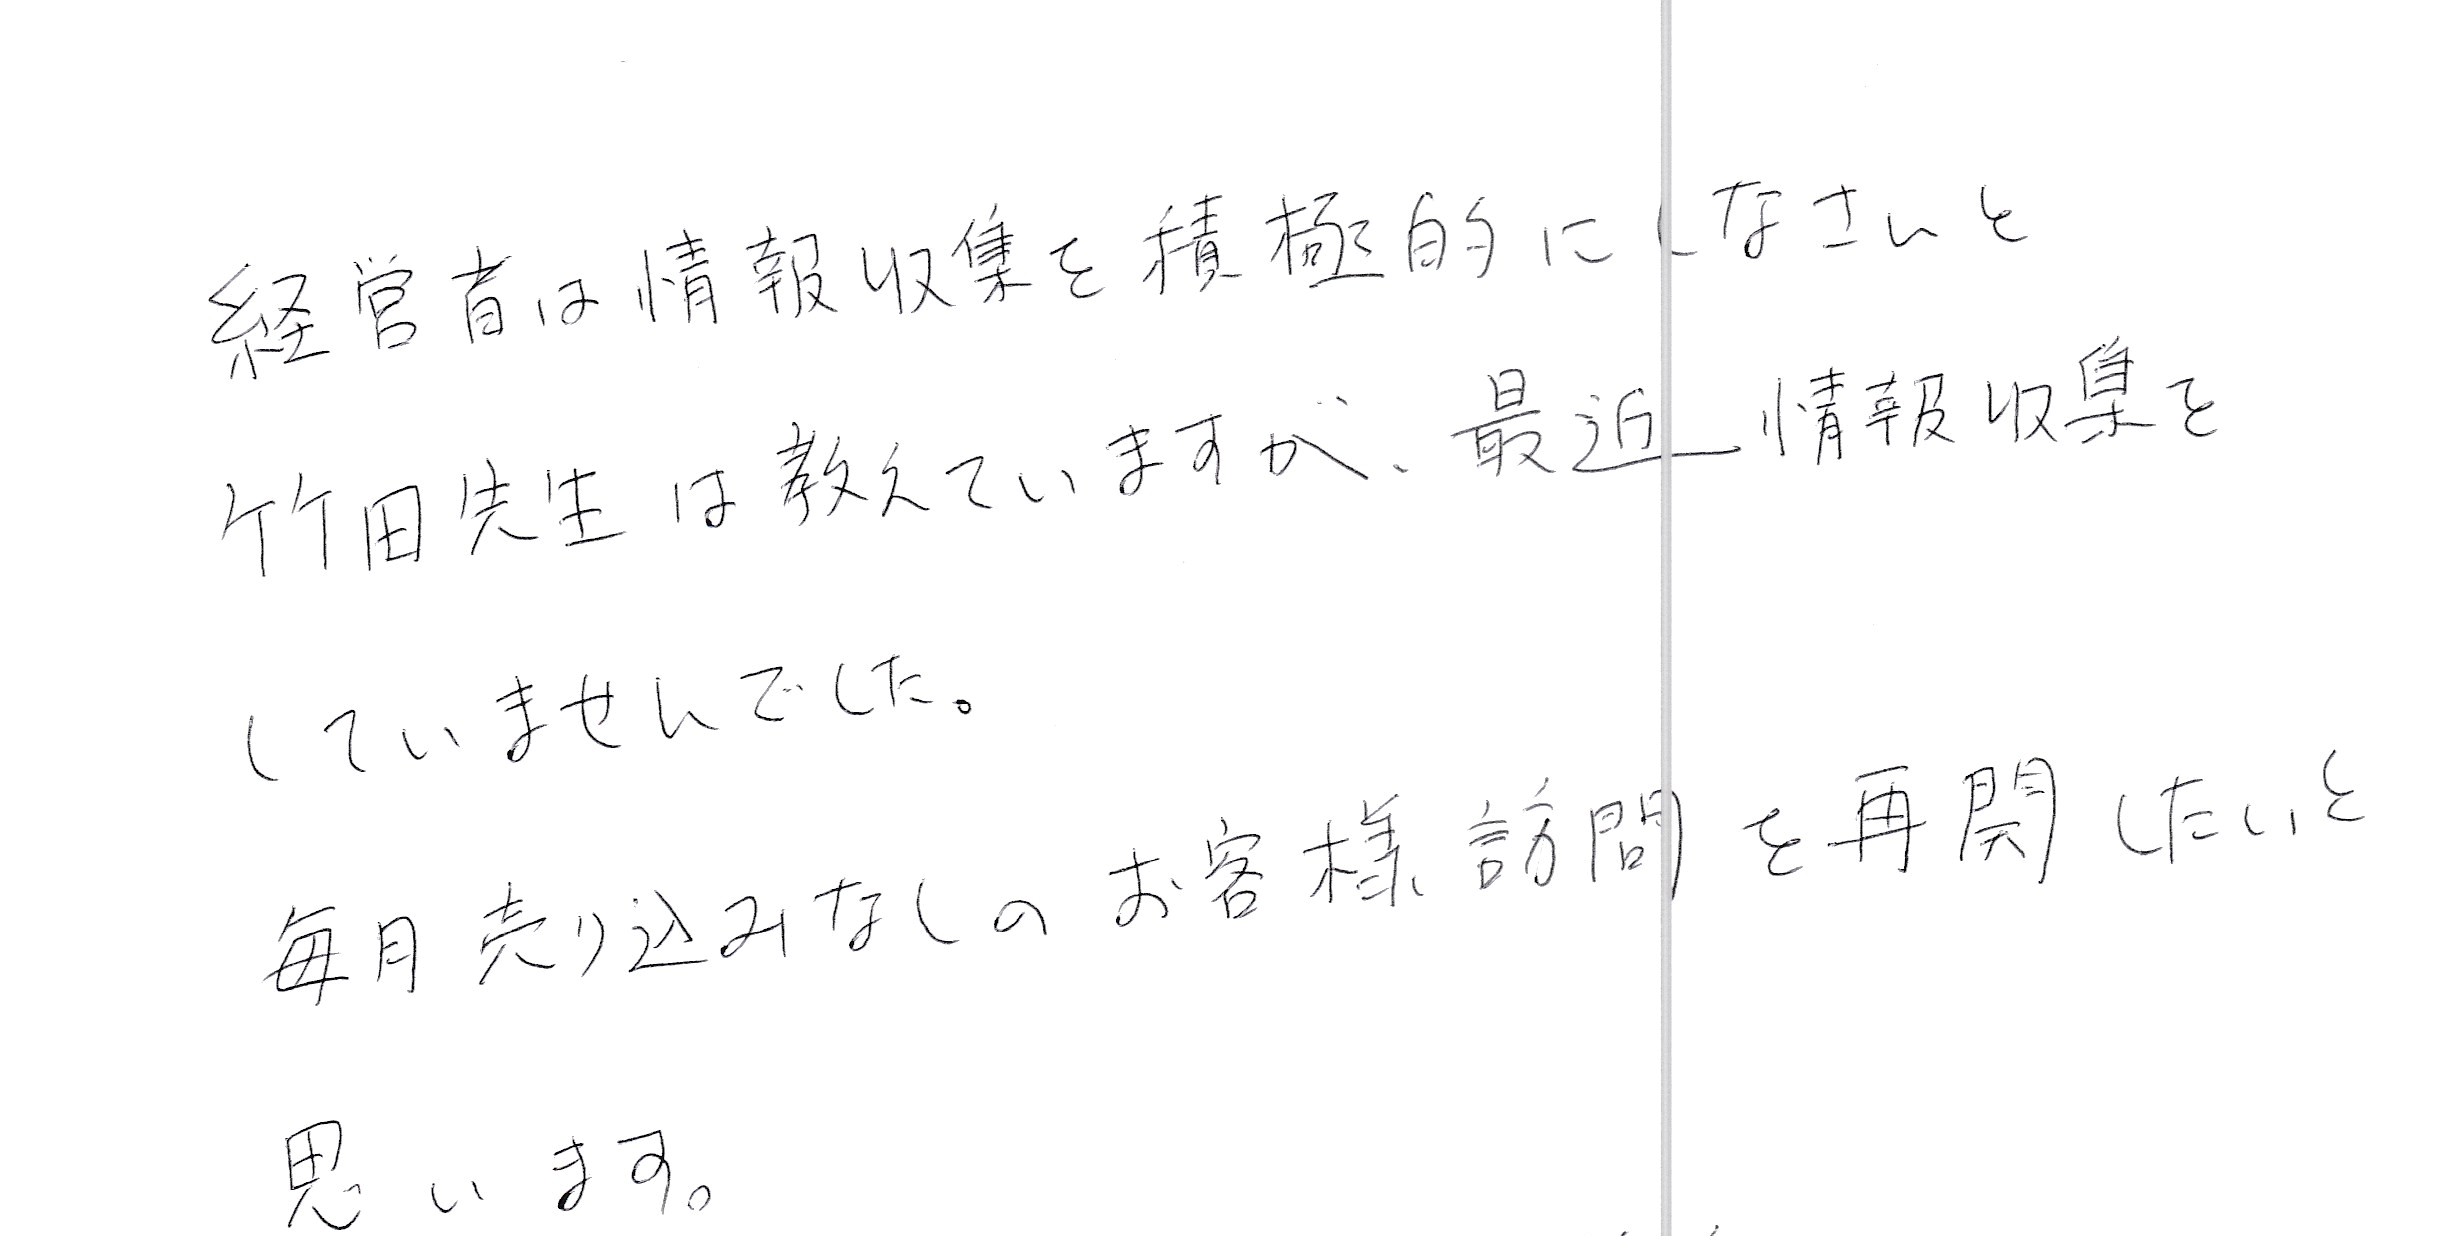 経営者は情報収集を積極的にしなさいと
竹田先生は教えていますが、最近情報収集を
していませんでした。
毎月売り込みなしのお客様訪問を再開したいと
思います。